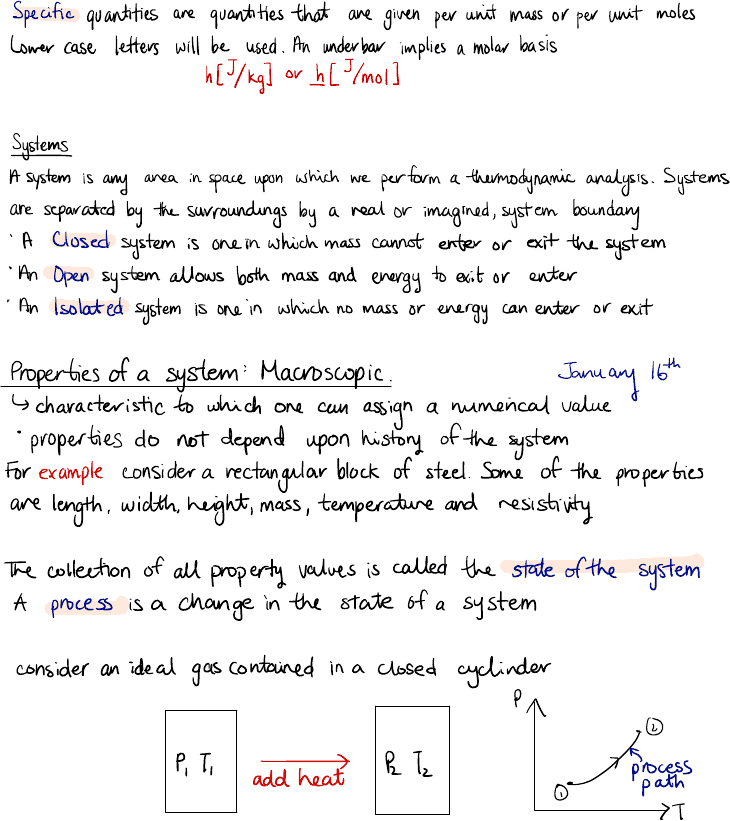 Specific quantities are quantities that are given per unit mass or per unit moles
Lower case letters will be used. An underbar implies a molar basis
h[J/kg] or h[J/mol]
Systems
A system is any area in space upon which we perform a thermodynamic analysis. Systems
are separated by the surroundings by a real or imagined, system boundary
· A Closed system is one in which mass cannot enter or exit the system
· An Open system allows both mass and energy to exit or enter
· An Isolated system is one in which no mass or energy can enter or exit
Properties of a system: Macroscopic.
January 16th
↳ characteristic to which one can assign a numerical value
· properties do not depend upon history of the system
For example consider a rectangular block of steel. Some of the properties
are length, width, height, mass, temperature and resistivity
The collection of all property values is called the state of the system
A process is a change in the state of a system
consider an ideal gas contained in a closed cyclinder
P₁ T₁
add heat
P₂ T₂
P
②
process
path
①
T